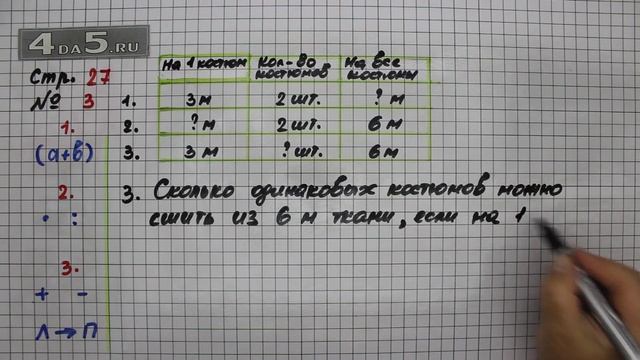 4DA5.RU
Стр. 27
№ 3
1.
(а+в)
2.
· :
3.
+ -
Л→П
на 1 костюм кол-во костюмов на все костюмы
1. 3 м 2 шт. ? м
2. ? м 2 шт. 6 м
3. 3 м ? шт. 6 м
3. Сколько одинаковых костюмов можно
сшить из 6 м ткани, если на 1